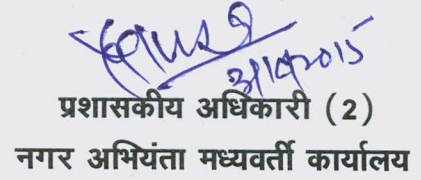 प्रशासकीय अधिकारी (2)
नगर अभियंता मध्यवर्ती कार्यालय